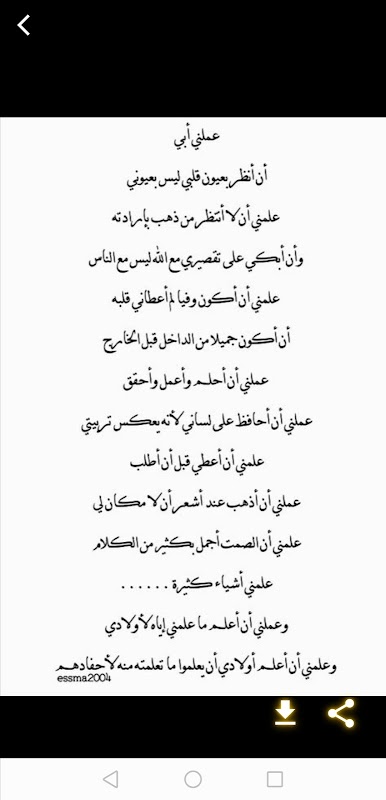 عملني أبي
أن أنظر بعيون قلبي ليس بعيوني
علمني أن لا أنتظر من ذهب بإرادته
وأن أبكي على تقصيري مع الله ليس مع الناس
علمني أن أكون وفيا لم أعطاني قلبه
أن أكون جميلا من الداخل قبل الخارج
عملني أن أحلم وأعمل وأحقق
عملني أن أحافظ على لساني لأنه يعكس تربيتي
علمني أن أعطي قبل أن أطلب
عملني أن أذهب عند أشعر أن لا مكان لي
علمني أن الصمت أجمل بكثير من الكلام
علمني أشياء كثيرة ......
وعملني أن أعلم ما علمني إياه لأولادي
وعلمني أن أعلم أولادي أن يعلموا ما تعلمته منه لأحفادهم
essma2004